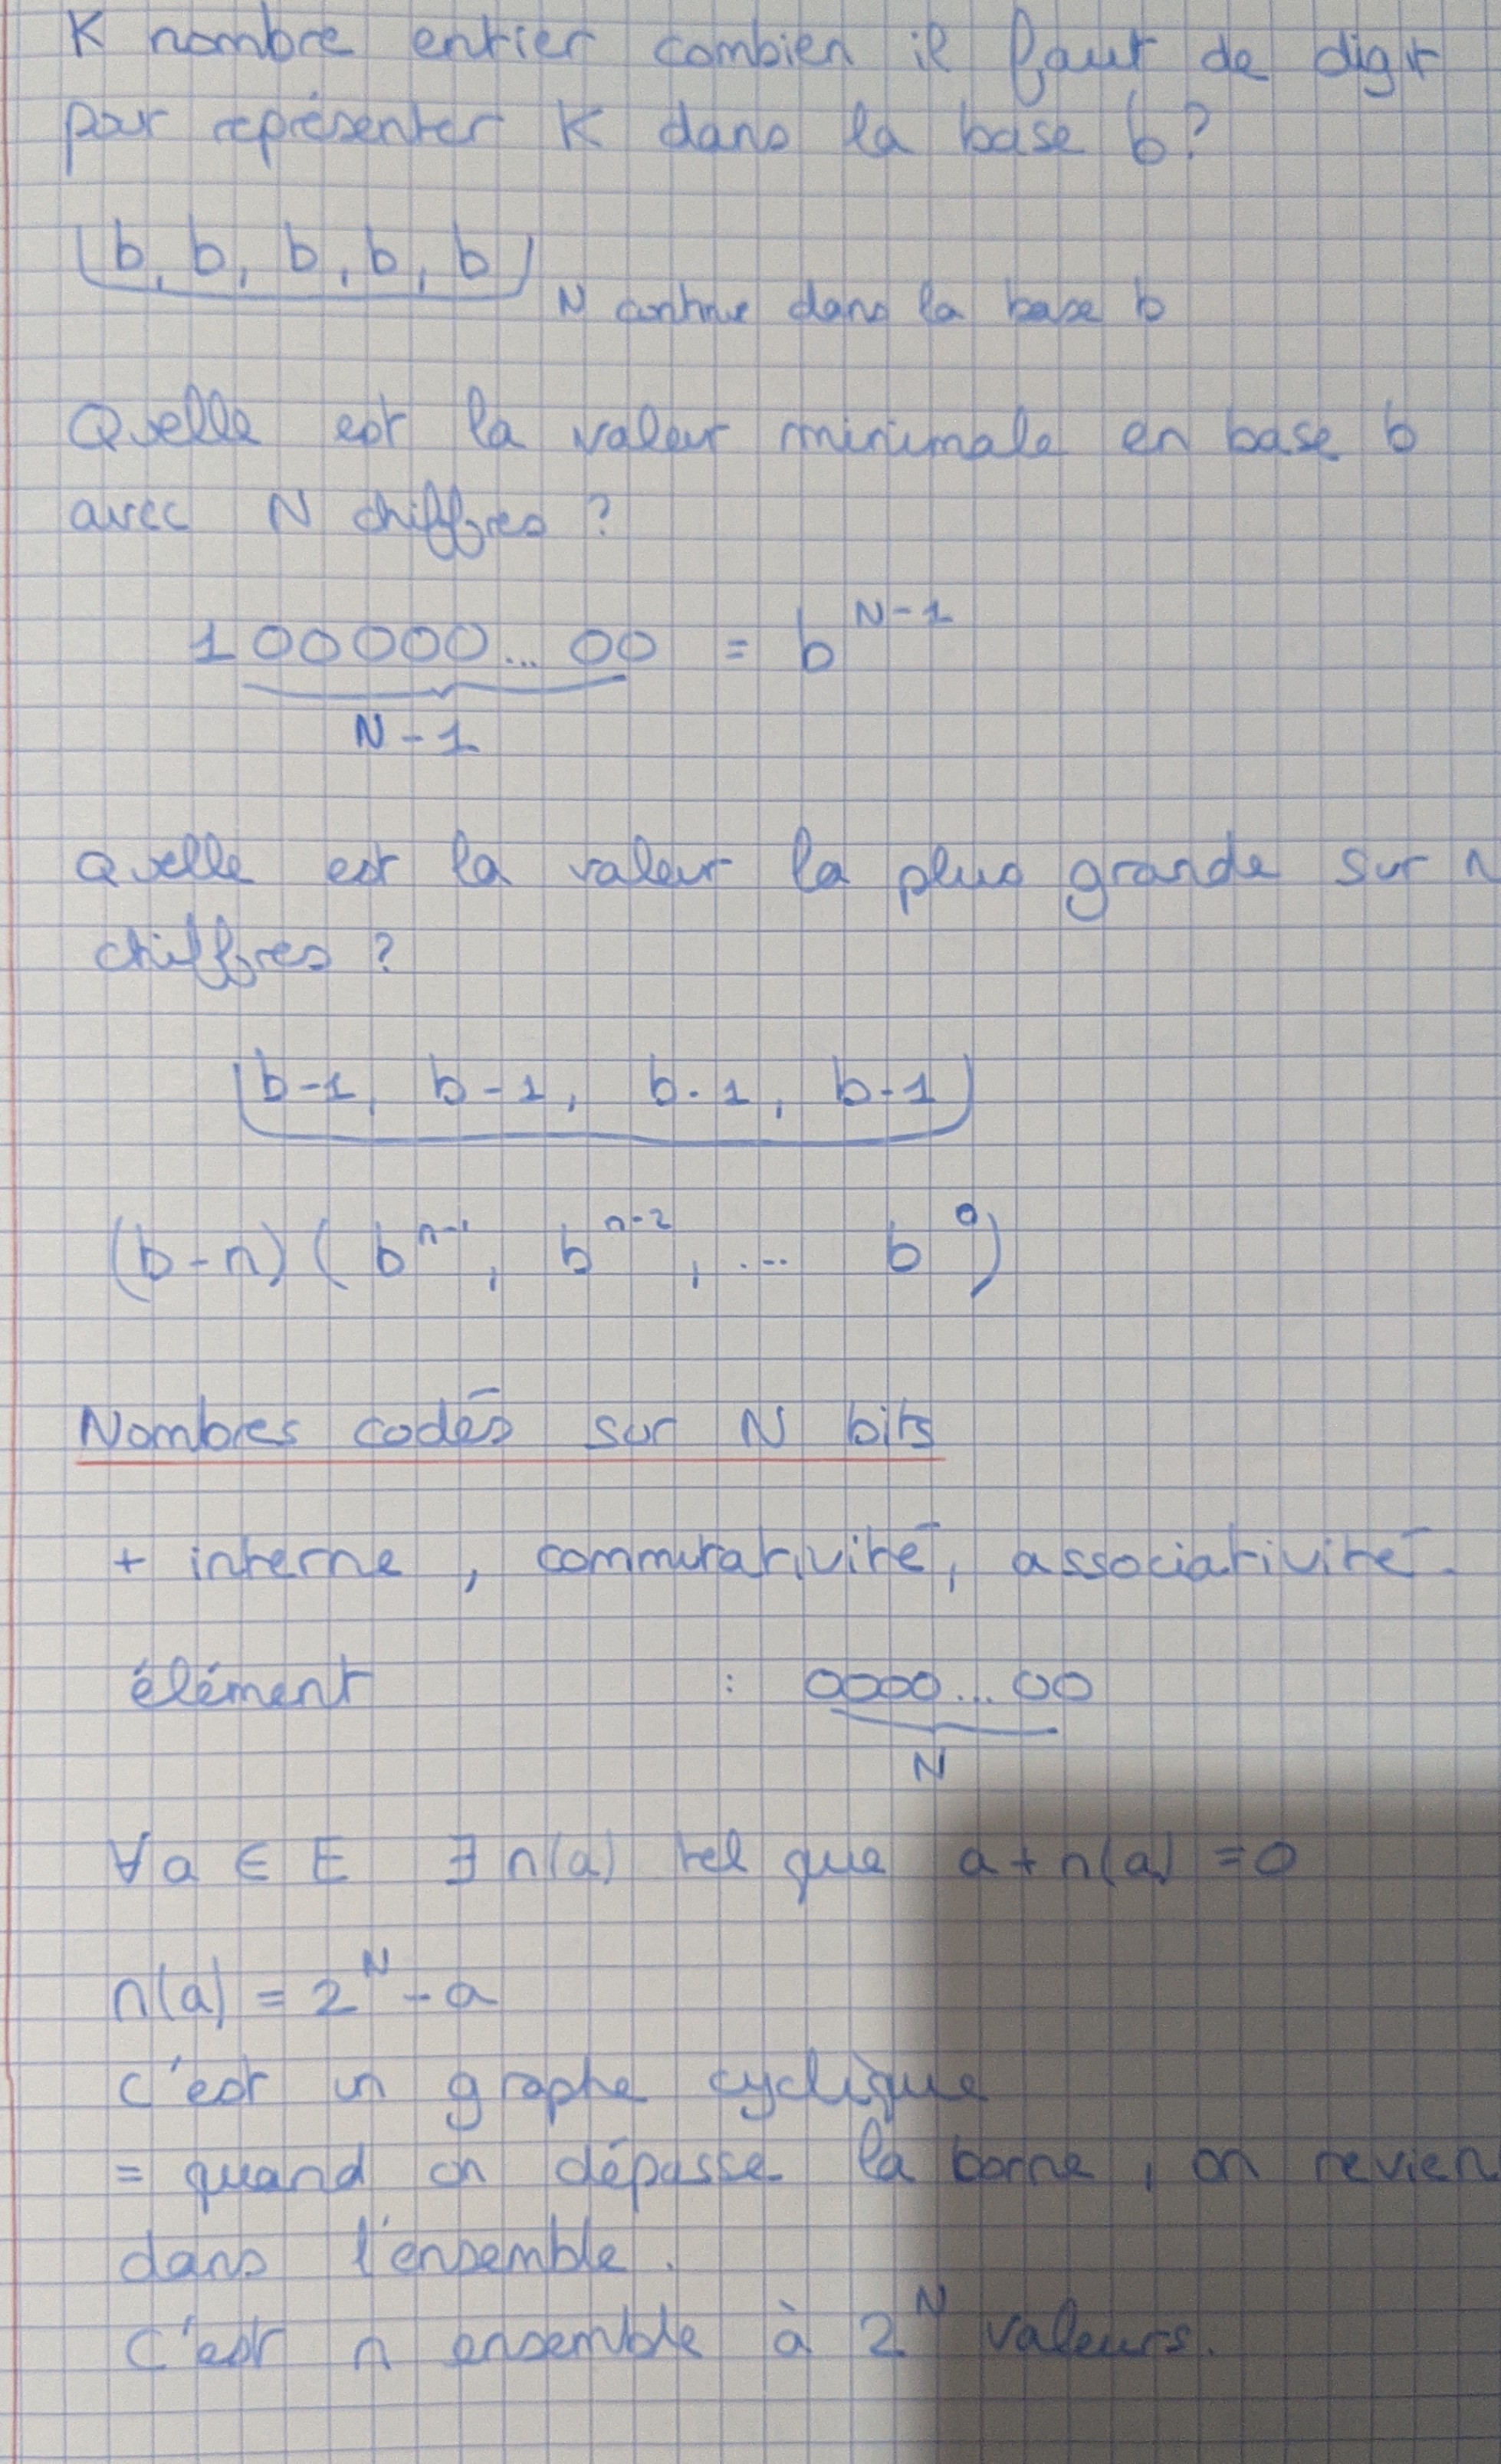 K nombre entier combien il faut de digit
pour représenter K dans la base b?
b, b, b, b, b
N dans la base b
Quelle est la valeur minimale en base b
avec N chiffres ?
100000...00 = b^N-1
N-1
Quelle est la valeur la plus grande sur n
chiffres ?
b-1, b-1, b-1, b-1
(b-n)(b^n-1, b^n-2, ... b^0)
Nombres codés sur N bits
+ interne, commutativité, associativité.
élément : 0000...00
N
∀a ∈ E ∃ n(a) tel que a+n(a) =0
n(a) = 2^N - a
c'est un graphe cyclique
= quand on dépasse la borne, on revien
dans l'ensemble.
C'est n ensemble à 2^N valeurs.